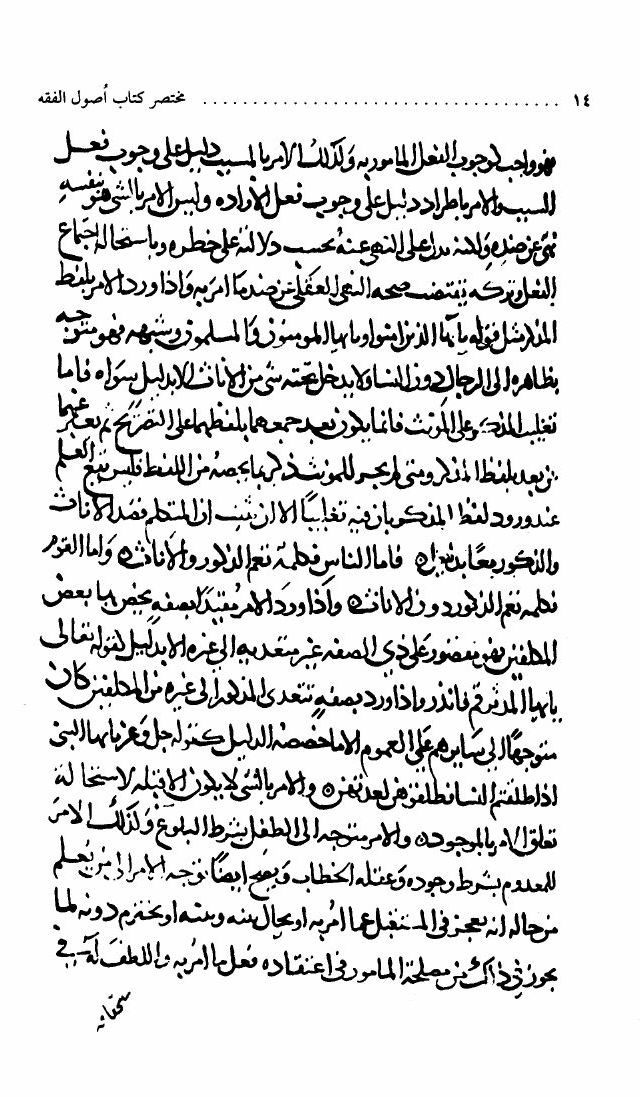 ١٤ ........ مختصر كتاب أصول الفقه
فهو واجب لوجوب الفعل المامور به وكذلك الامر بالمسبب دليل على وجوب فعل
السبب والامر بالمراد دليل على وجوب فعل الاراده وليس الامر بالشي هو بنفسه
نهي عن ضده ولكنه يدل على النهي عنه بحسب دلالته على حظره وباستحالة اجتماع
الفعل وتركه يقتضي صحه النهي العقلي عن ضد ما امر به واذا ورد الامر بلفظ
المذكر مثل قوله يا ايها الذين امنوا ويا ايها المومنون والمسلمون وشبهه فهو متوجه
بظاهره الى الرجال دون النسا ولا يدخل تحته شي من الاناث الا بدليل سواه فاما
تغليب المذكر على المونث فانما يكون بعد جمعهما بلفظهما على التصريح ثم يعبر عنهما
من بعد بلفظ المذكر ومتى لم يجر للمونث ذكر بما يخصه من اللفظ فليس يقع العلم
عند ورود لفظ المذكر بان فيه تغليبا الا ان يثبت ان المتكلم قصد الاناث
والذكور معا بدليل فاما الناس فكلمة تعم الذكور والاناث واما القوم
فكلمه تعم الذكور دون الاناث واذا ورد الامر مقيدا بصفه يخص بها بعض
المكلفين فهو مقصور على ذي الصفه غير متعديه الى غيره الا بدليل كقوله تعالى
يا ايها المدثر قم فانذر واذا ورد بصفه تتعدى المذكور الى غيره من المكلفين كان
متوجها الى سايرهم على العموم الا ما خصصه الدليل كقوله جل وعز يا ايها النبي
اذا طلقتم النسا فطلقوهن لعدتهن والامر بالشي لا يكون الا قبله لاستحالة
تعلق الامر بالموجود والامر متوجه الى الطفل بشرط البلوغ وكذلك الامر
للمعدوم بشرط وجوده وعقله الخطاب ويصح ايضا توجه الامر الى من يعلم
من حاله انه يعجز في المستقبل عما امر به او يحال بينه وبينه او يخترم دونه لما
يجوز في ذلك من مصلحة المامور في اعتقاده فعل ما امر به واللطف له في
استحقاقه